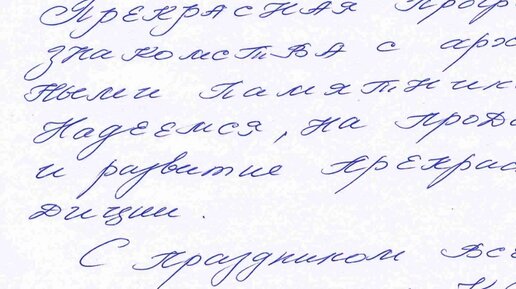 Прекрасная прогр
знакомства с арх
ными памятник
Надеемся, на прод
и развитие прекрас
диции.
С праздником все